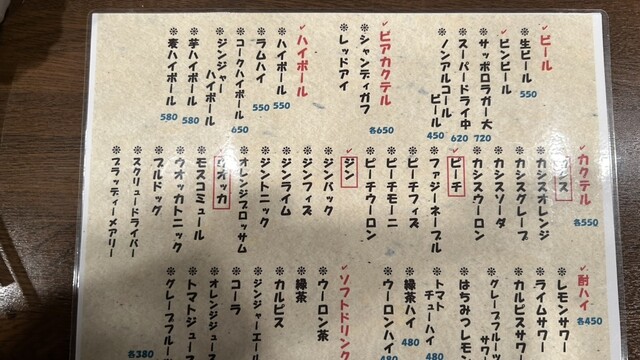 ビール
生ビール 550
ビンビール
サッポロラガー大 720
スーパードライ中 620
ノンアルコール
ビール 450
ビアカクテル
各650
シャンディガフ
レッドアイ
ハイボール
ハイボール 550
ラムハイ 550
コークハイボール 650
ジンジャー
ハイボール
芋ハイボール 580
麦ハイボール 580
カクテル
各550
カシス
カシスオレンジ
カシスグレープ
カシスソーダ
カシスウーロン
ピーチ
ファジーネーブル
ピーチフィズ
ピーチモーニ
ピーチウーロン
ジン
ジンバック
ジンフィズ
ジンライム
ジントニック
オレンジブロッサム
ウオッカ
モスコミュール
ウオッカトニック
ブルドッグ
スクリュードライバー
ブラッディーメアリー
酎ハイ
各450
レモンサワー
ライムサワー
カルピスサワー
グレープフルーツ
サワ
はちみつレモン
トマト
チューハイ 480
緑茶ハイ 480
ウーロンハイ
ソフトドリンク
ウーロン茶
緑茶
カルピス
ジンジャーエール
コーラ
オレンジジュース
トマトジュース
グレープフルーツ
各380